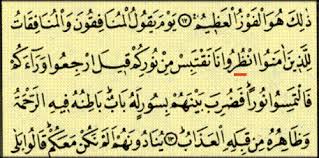 ذٰلِكَ هُوَ الْفَوْزُ الْعَظِيْمُ ﴿۱۲﴾ يَوْمَ يَقُوْلُ الْمُنٰفِقُوْنَ وَالْمُنٰفِقٰتُ
لِلَّذِيْنَ اٰمَنُوا انْظُرُوْنَا نَقْتَبِسْ مِنْ نُّوْرِكُمْ قِيْلَ ارْجِعُوْا وَرَآءَكُمْ
فَالْتَمِسُوْا نُوْرًا فَضُرِبَ بَيْنَهُمْ بِسُوْرٍ لَّهٗ بَابٌ بَاطِنُهٗ فِيْهِ الرَّحْمَةُ
وَظَاهِرُهٗ مِنْ قِبَلِهِ الْعَذَابُ ﴿۱۳﴾ يُنَادُوْنَهُمْ اَلَمْ نَكُنْ مَّعَكُمْ قَالُوْا بَلٰى